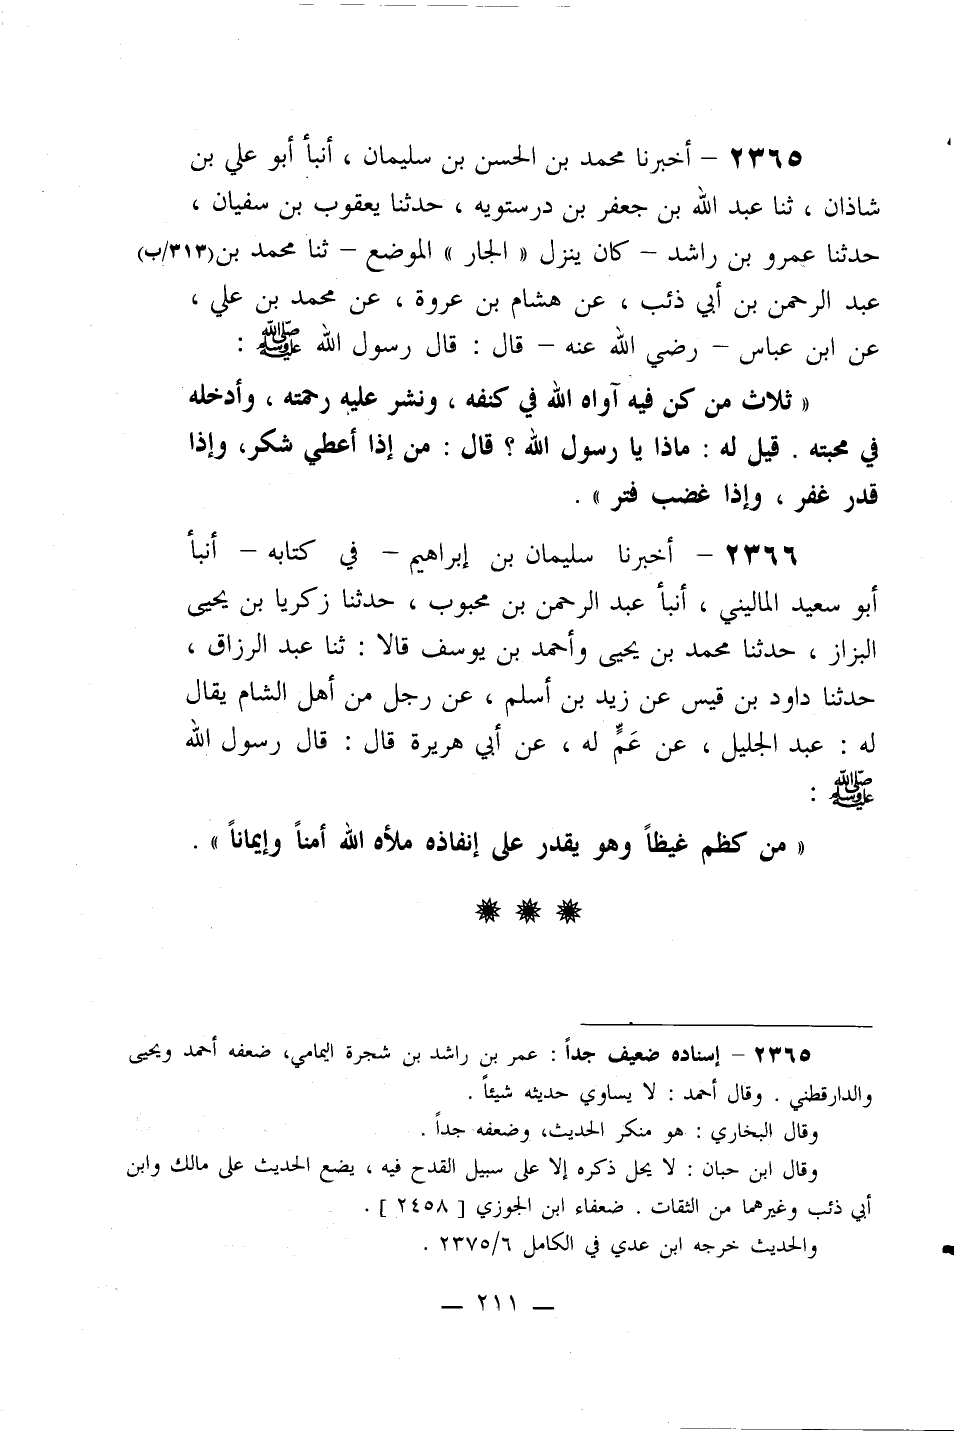 ٢٣٦٥ – أخبرنا محمد بن الحسن بن سليمان ، أنبأ أبو علي بن
شاذان ، ثنا عبد الله بن جعفر بن درستويه ، حدثنا يعقوب بن سفيان ،
حدثنا عمرو بن راشد – كان ينزل « الجار » الموضع – ثنا محمد بن(٣١٣/ب)
عبد الرحمن بن أبي ذئب ، عن هشام بن عروة ، عن محمد بن علي ،
عن ابن عباس – رضي الله عنه – قال : قال رسول الله ﷺ :
« ثلاث من كن فيه آواه الله في كنفه ، ونشر عليه رحمته ، وأدخله
في محبته . قيل له : ماذا يا رسول الله ؟ قال : من إذا أعطي شكر، وإذا
قدر غفر ، وإذا غضب فتر » .
٢٣٦٦ – أخبرنا سليمان بن إبراهيم – في كتابه – أنبأ
أبو سعيد الماليني ، أنبأ عبد الرحمن بن محبوب ، حدثنا زكريا بن يحيى
البزاز ، حدثنا محمد بن يحيى وأحمد بن يوسف قالا : ثنا عبد الرزاق ،
حدثنا داود بن قيس عن زيد بن أسلم ، عن رجل من أهل الشام يقال
له : عبد الجليل ، عن عَمٍّ له ، عن أبي هريرة قال : قال رسول الله
ﷺ :
« من كظم غيظاً وهو يقدر على إنفاذه ملأه الله أمناً وإيماناً » .
٢٣٦٥ – إسناده ضعيف جداً : عمر بن راشد بن شجرة اليمامي، ضعفه أحمد ويحيى
والدارقطني . وقال أحمد : لا يساوي حديثه شيئاً .
وقال البخاري : هو منكر الحديث، وضعفه جداً .
وقال ابن حبان : لا يحل ذكره إلا على سبيل القدح فيه ، يضع الحديث على مالك وابن
أبي ذئب وغيرهما من الثقات . ضعفاء ابن الجوزي [ ٢٤٥٨ ] .
والحديث خرجه ابن عدي في الكامل ٢٣٧٥/٦ .
— ٢١١ —